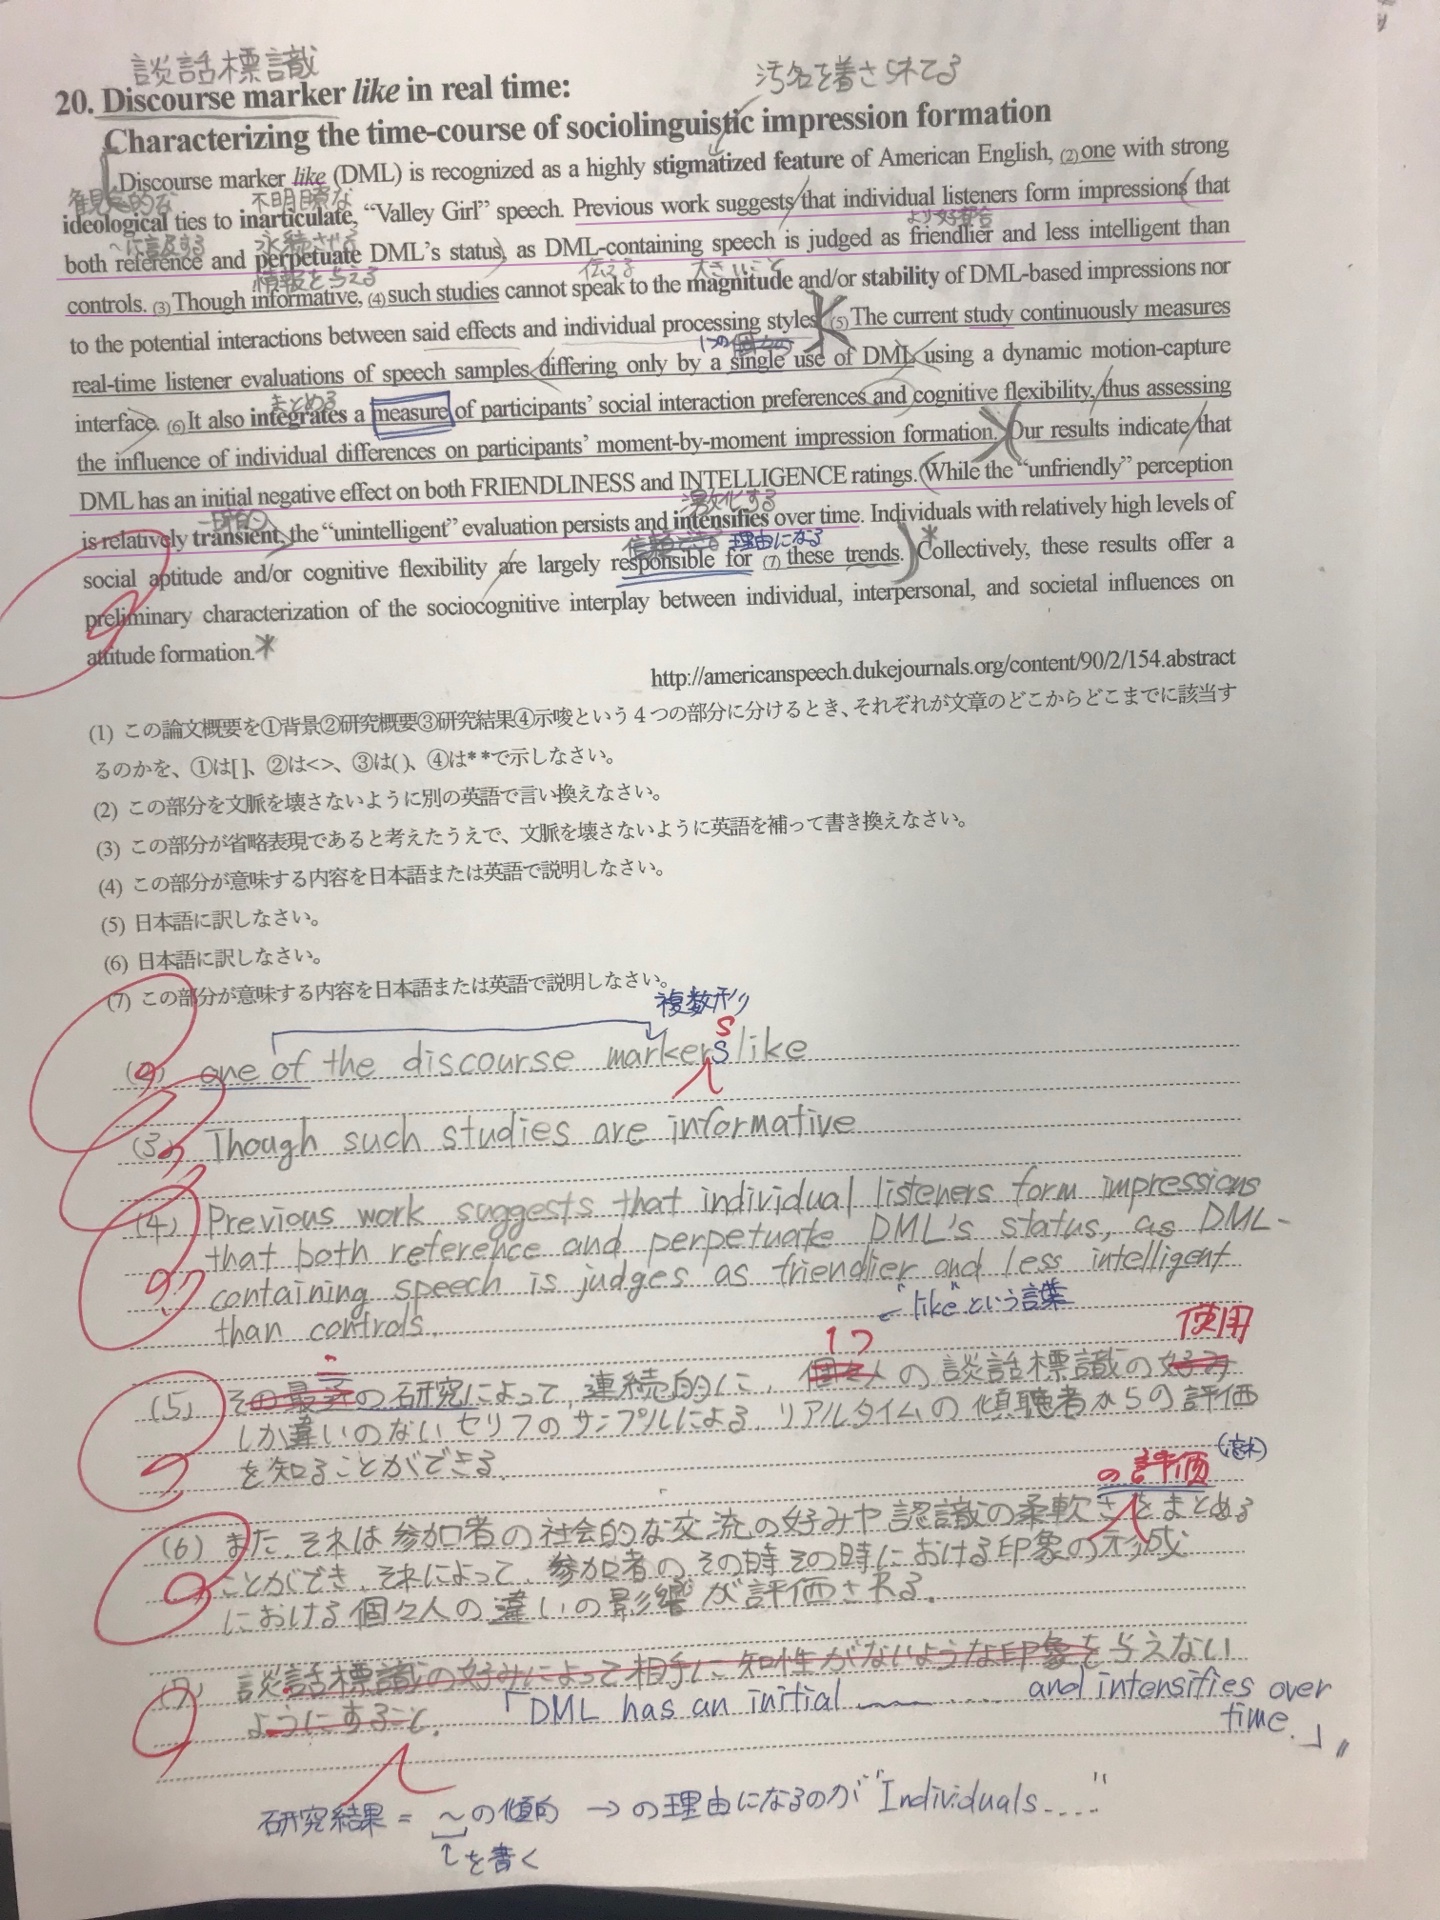 談話標識
20. Discourse marker like in real time:
汚名を着さられてる
Characterizing the time-course of sociolinguistic impression formation
Discourse marker like (DML) is recognized as a highly stigmatized feature of American English, (2) one with strong
観念的な 不明瞭な
ideological ties to inarticulate, “Valley Girl” speech. Previous work suggests that individual listeners form impressions that
〜に言及する 永続させる より好意的
both reference and perpetuate DML’s status, as DML-containing speech is judged as friendlier and less intelligent than
情報を与える 伝える 大きいこと
controls. (3) Though informative, (4) such studies cannot speak to the magnitude and/or stability of DML-based impressions nor
to the potential interactions between said effects and individual processing styles. (5) The current study continuously measures
1つの
real-time listener evaluations of speech samples differing only by a single use of DML using a dynamic motion-capture
まとめる
interface. (6) It also integrates a measure of participants’ social interaction preferences and cognitive flexibility, thus assessing
the influence of individual differences on participants’ moment-by-moment impression formation. Our results indicate that
DML has an initial negative effect on both FRIENDLINESS and INTELLIGENCE ratings. While the “unfriendly” perception
一時的 激化する
is relatively transient, the “unintelligent” evaluation persists and intensifies over time. Individuals with relatively high levels of
信頼できる 理由になる
social aptitude and/or cognitive flexibility are largely responsible for (7) these trends. * Collectively, these results offer a
preliminary characterization of the sociocognitive interplay between individual, interpersonal, and societal influences on
attitude formation. *
http://americanspeech.dukejournals.org/content/90/2/154.abstract
(1) この論文概要を①背景②研究概要③研究結果④示唆という４つの部分に分けるとき、それぞれが文章のどこからどこまでに該当す
るのかを、①は[ ]、②は< >、③は( )、④は* *で示しなさい。
(2) この部分を文脈を壊さないように別の英語で言い換えなさい。
(3) この部分が省略表現であると考えたうえで、文脈を壊さないように英語を補って書き換えなさい。
(4) この部分が意味する内容を日本語または英語で説明しなさい。
(5) 日本語に訳しなさい。
(6) 日本語に訳しなさい。
(7) この部分が意味する内容を日本語または英語で説明しなさい。
複数形
s
(2) one of the discourse markers like
(3) Though such studies are informative
(4) Previous work suggests that individual listeners form impressions
that both reference and perpetuate DML's status, as DML-
containing speech is judges as friendlier and less intelligent
than controls.
“like”という言葉
1つ 使用
(5) その最近の研究によって、連続的に、個々人の談話標識の好み
しか違いのないセリフのサンプルによる、リアルタイムの傾聴者からの評価
を知ることができる。
の評価
(6) また、それは参加者の社会的な交流の好みや認識の柔軟さをまとめる
ことができ、それによって、参加者のその時その時における印象の形成
における個々人の違いの影響が評価される。
(7) 談話標識の好みによって相手に知性がないような印象を与えない
ようにすること。 「DML has an initial ........ and intensifies over
time.」
研究結果 = 〜の傾向 → の理由になるのが "Individuals...."
↑を書く